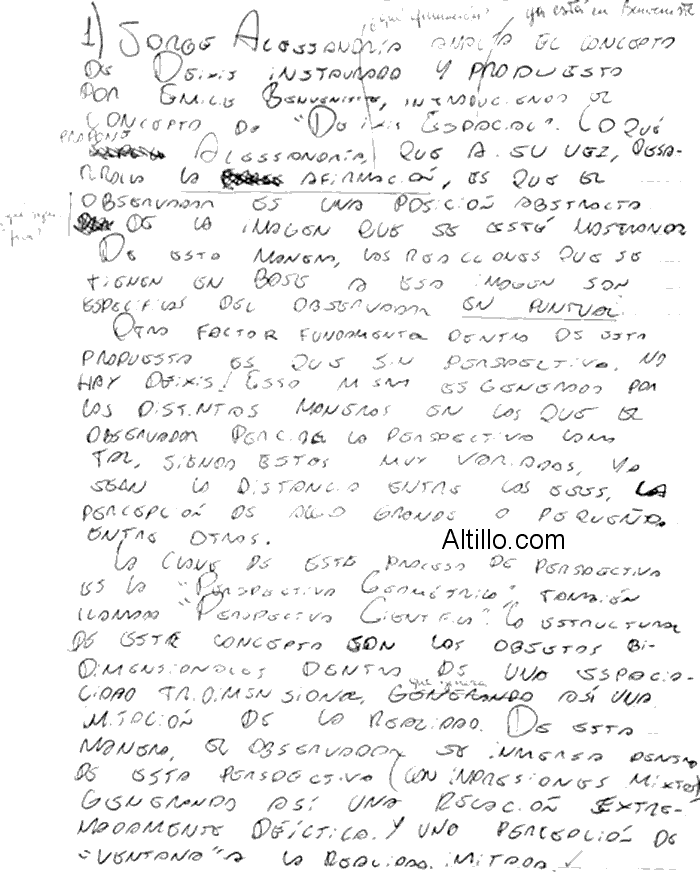 ¿qué afirmación? ya está en Benveniste
1) JORGE ALESSANDRÍA AMPLÍA EL CONCEPTO
DE DEIXIS INSTAURADO Y PROPUESTO
POR EMILE BENVENISTE, INTRODUCIENDO EL
CONCEPTO DE "DEIXIS ESPACIAL". LO QUÉ
PROPONE
ALESSANDRÍA, QUE A SU VEZ, DESA-
RROLLA LA AFIRMACIÓN, ES QUE EL
OBSERVADOR ES UNA POSICIÓN ABSTRACTA
DE LA IMAGEN QUE SE ESTÉ MOSTRANDO
DE ESTA MANERA, LAS REACCIONES QUE SE
TIENEN EN BASE A ESA IMAGEN SON
ESPECÍFICAS DEL OBSERVADOR EN PUNTUAL.
OTRO FACTOR FUNDAMENTAL DENTRO DE ESTA
PROPUESTA ES QUE SIN PERSPECTIVA, NO
HAY DEIXIS. ES GENERADA POR
LOS DISTINTAS MANERAS EN LAS QUE EL
OBSERVADOR PERCIBE LA PERSPECTIVA COMO
TAL, SIENDO ESTAS MUY VARIADAS, YA
SEAN LA DISTANCIA ENTRE LOS EJES, LA
PERCEPCIÓN DE ALGO GRANDE O PEQUEÑO,
ENTRE OTRAS.
Altillo.com
LA CLAVE DE ESTE PROCESO DE PERSPECTIVA
ES LA "PERSPECTIVA GEOMÉTRICA" TAMBIÉN
LLAMADA "PERSPECTIVA CIENTÍFICA". LA ESTRUCTURA
DE ESTE CONCEPTO SON LOS OBJETOS BI-
DIMENSIONALES DENTRO DE UNA ESPACIA-
LIDAD TRIDIMENSIONAL, GENERANDO ASÍ UNA
IMITACIÓN DE LA REALIDAD. DE ESTA
MANERA, EL OBSERVADOR SE INMERSA DENTRO
DE ESTA PERSPECTIVA (CON IMPRESIONES MIXTAS)
GENERANDO ASÍ UNA RELACIÓN EXTRE-
MADAMENTE DEÍCTICA. Y UNA PERCEPCIÓN DE
"VENTANA" A LA REALIDAD IMITADA. ✓